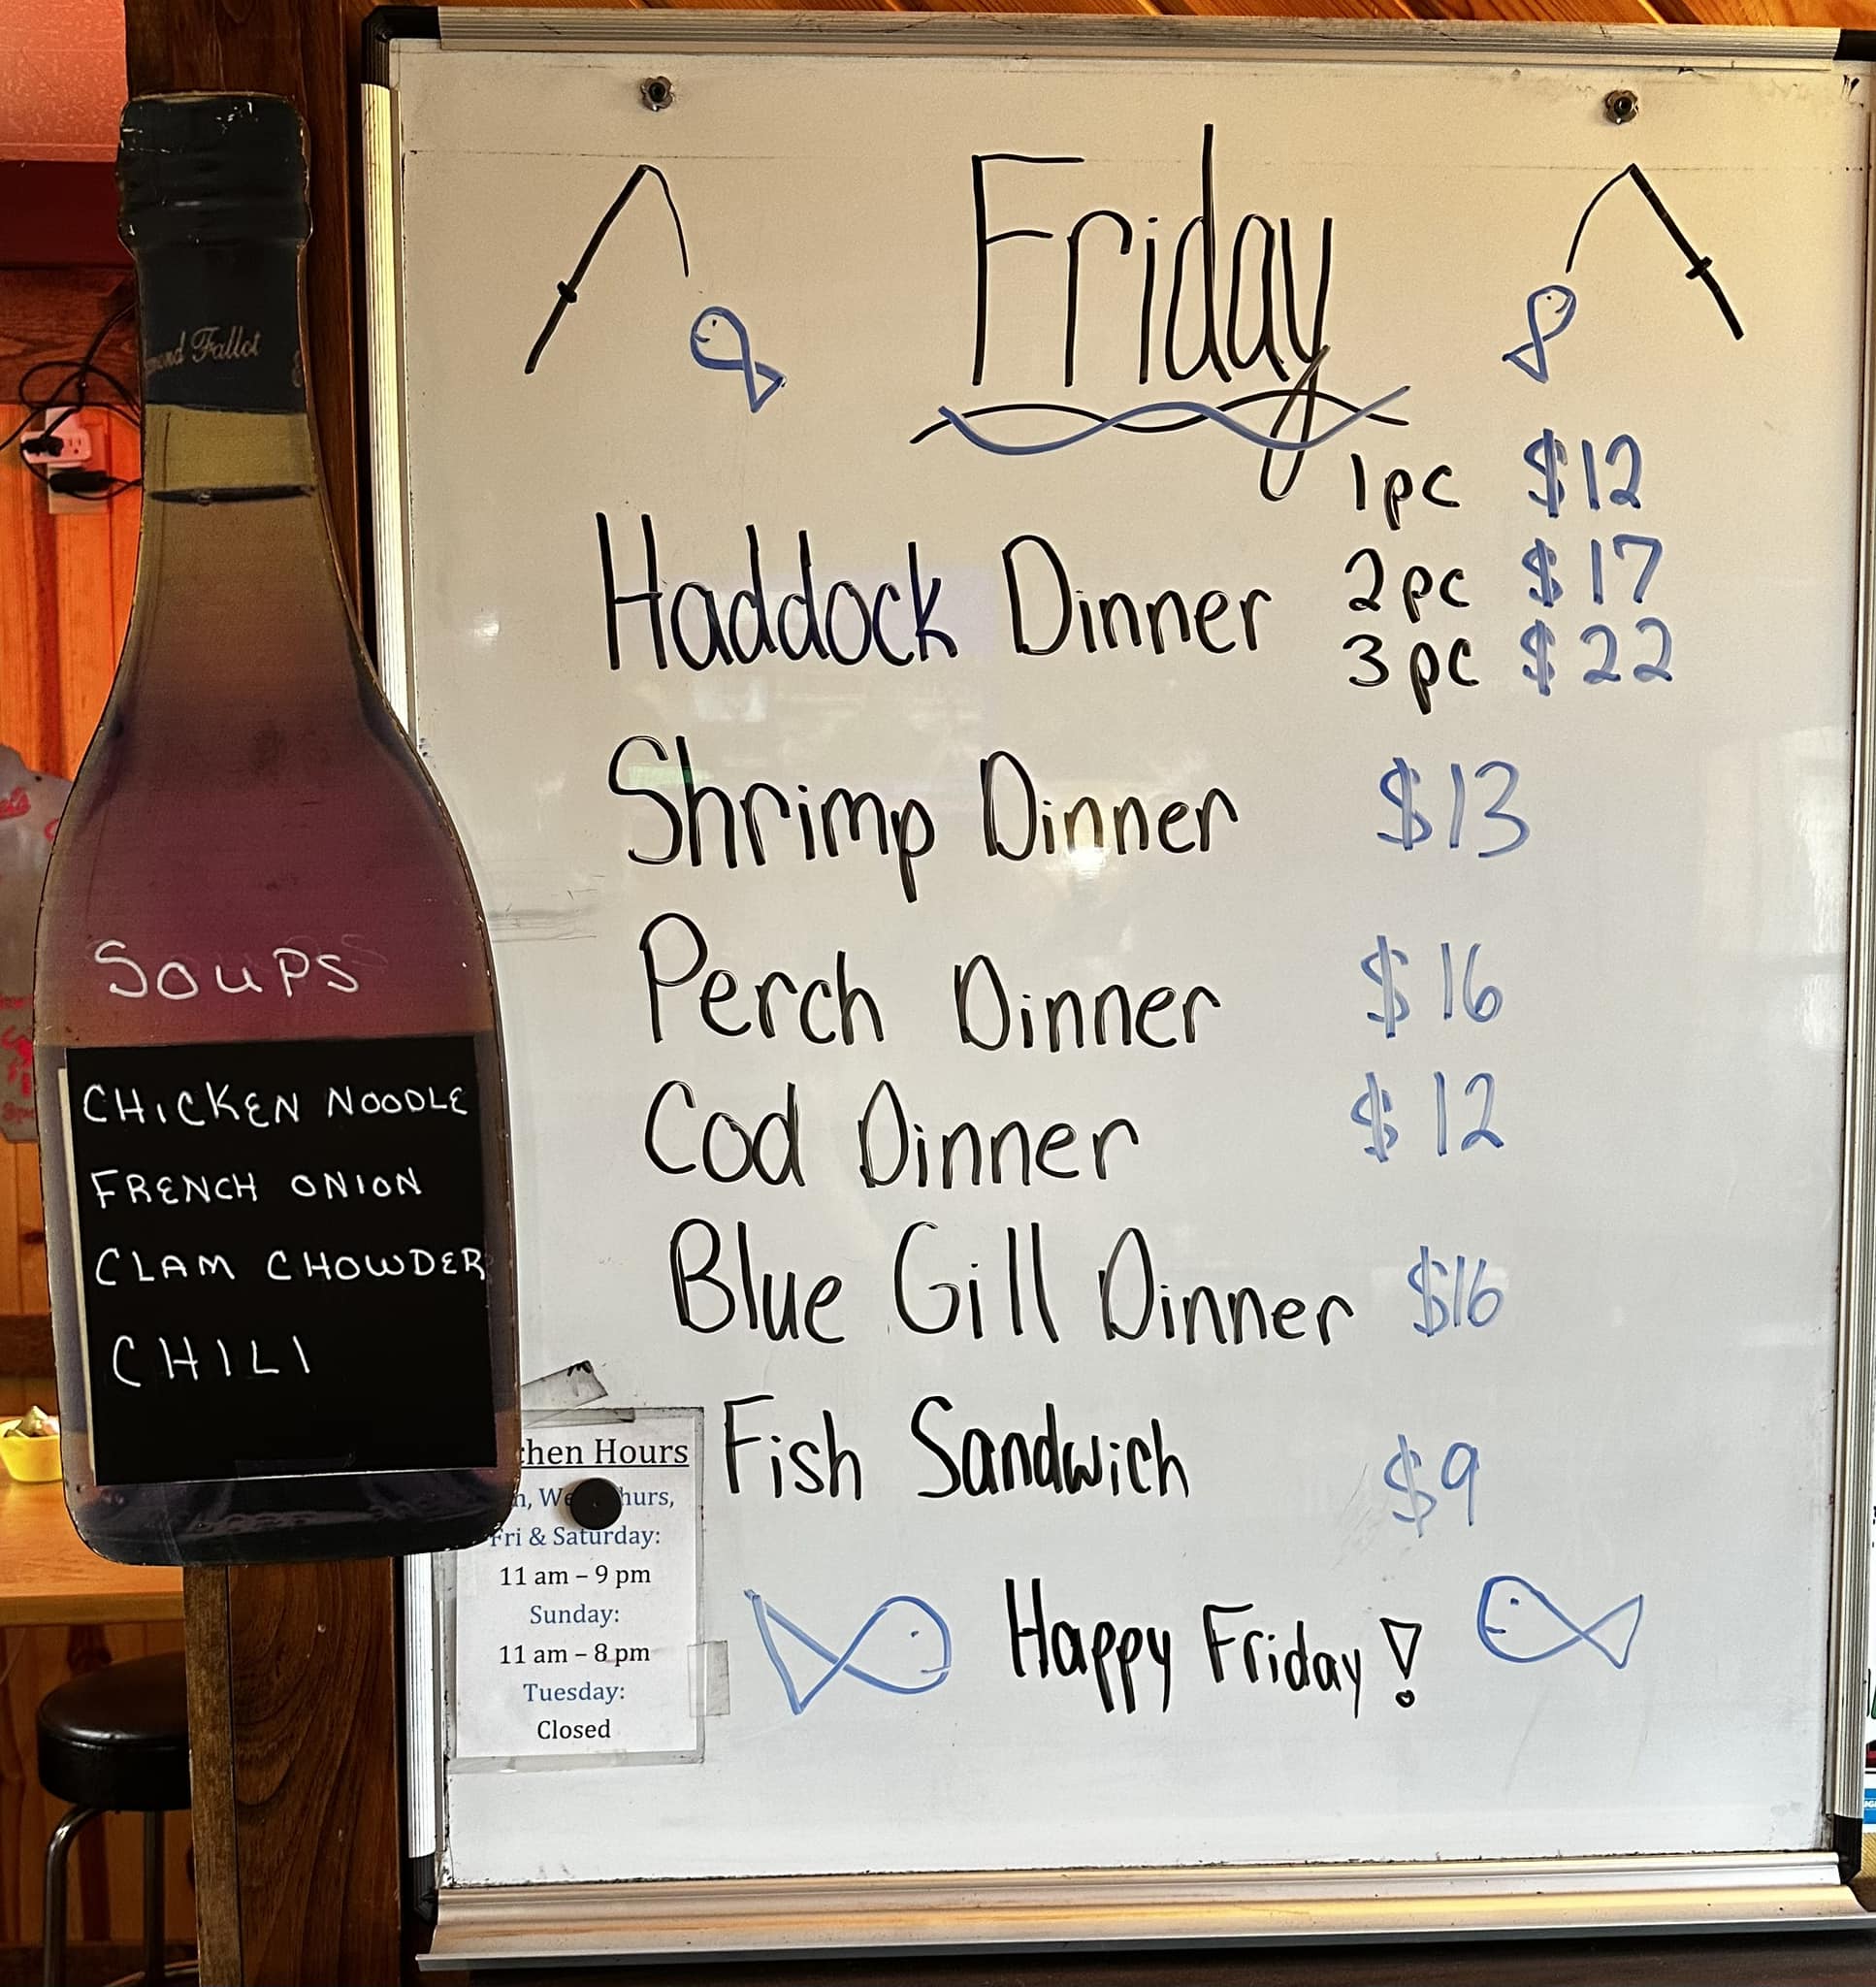 Friday
1pc $12
Haddock Dinner 2pc $17
3pc $22
Shrimp Dinner $13
Perch Dinner $16
Cod Dinner $12
Blue Gill Dinner $16
Fish Sandwich $9
Happy Friday!
Fallot
SOUPS
CHICKEN NOODLE
FRENCH ONION
CLAM CHOWDER
CHILI
Hours
Fri & Saturday:
11 am – 9 pm
Sunday:
11 am – 8 pm
Tuesday:
Closed